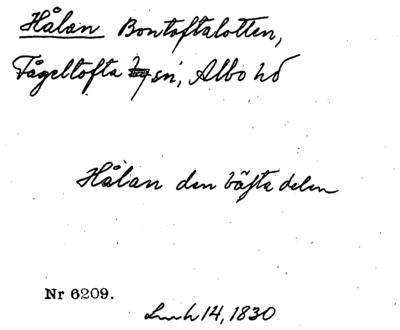 Hålan Bontoftalotten,
Fågeltofta sn, Albo hd
Hålan den bästa delen
Nr 6209.
Lmh 14, 1830